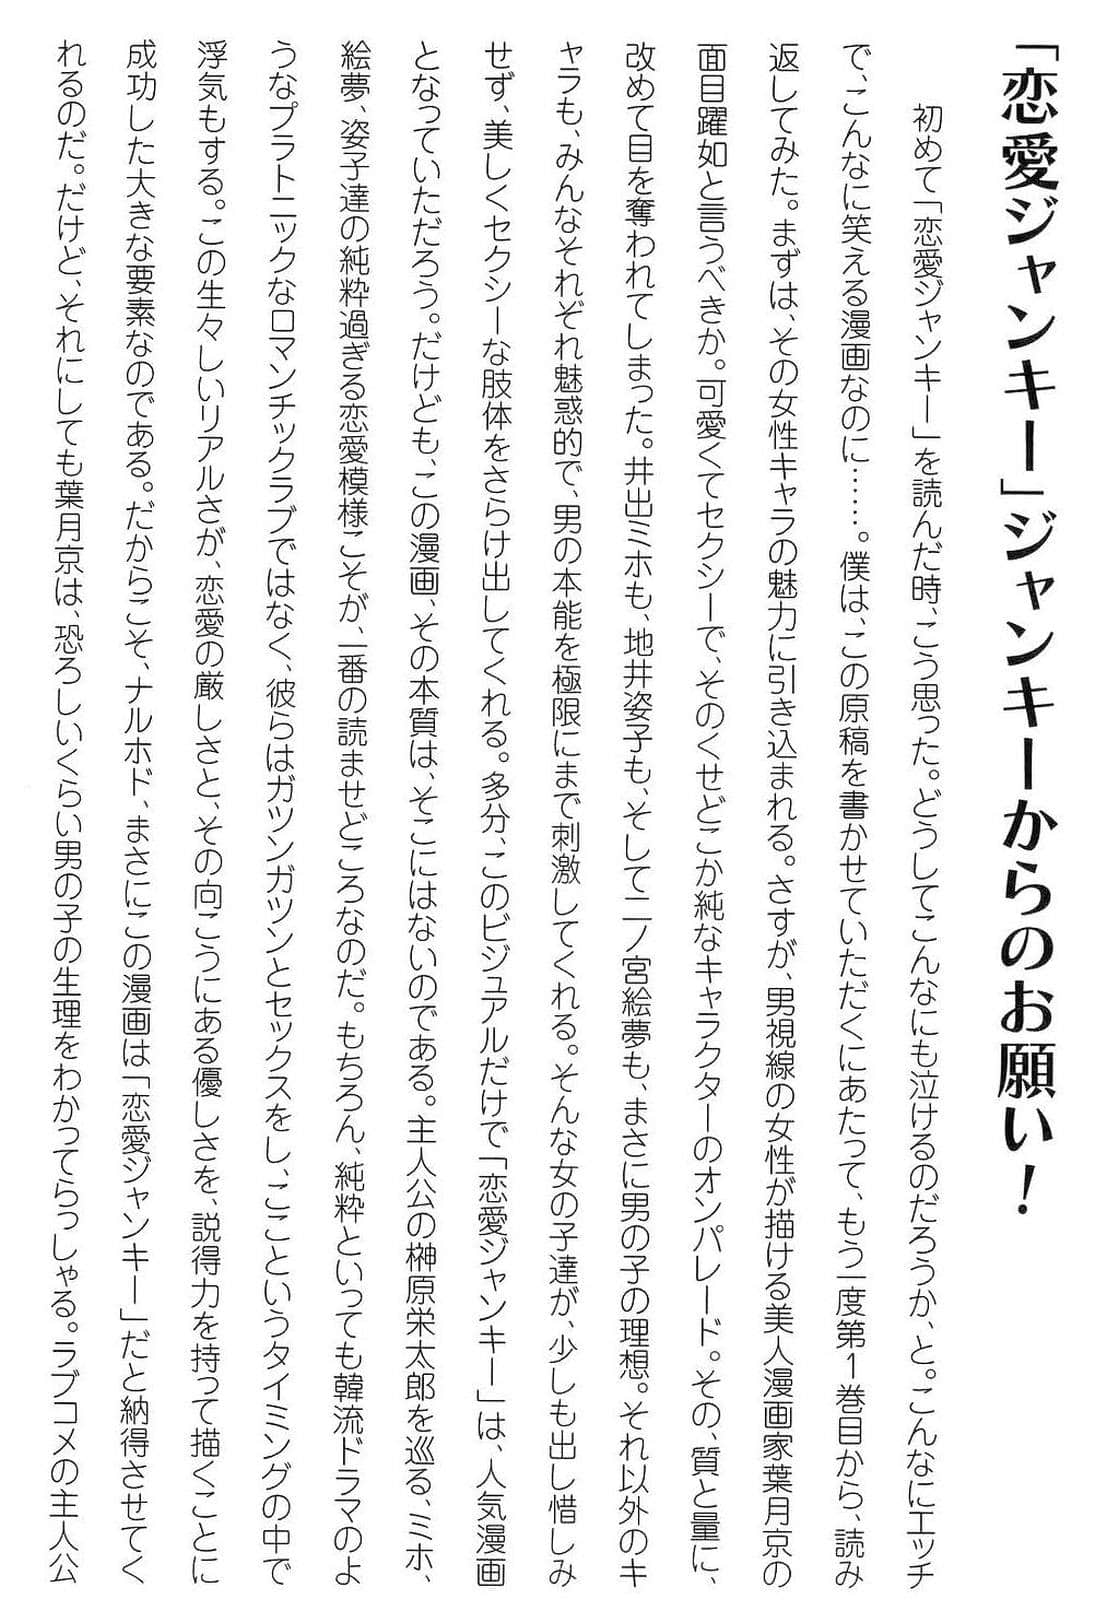 「恋愛ジャンキー」ジャンキーからのお願い！
初めて「恋愛ジャンキー」を読んだ時、こう思った。どうしてこんなにも泣けるのだろうか、と。こんなにエッチ
で、こんなに笑える漫画なのに……。僕は、この原稿を書かせていただくにあたって、もう一度第1巻目から、読み
返してみた。まずは、その女性キャラの魅力に引き込まれる。さすが、男視線の女性が描ける美人漫画家葉月京の
面目躍如と言うべきか。可愛くてセクシーで、そのくせどこか純なキャラクターのオンパレード。その、質と量に、
改めて目を奪われてしまった。井出ミホも、地井姿子も、そして二ノ宮絵夢も、まさに男の子の理想。それ以外のキ
ャラも、みんなそれぞれ魅惑的で、男の本能を極限にまで刺激してくれる。そんな女の子達が、少しも出し惜しみ
せず、美しくセクシーな肢体をさらけ出してくれる。多分、このビジュアルだけで「恋愛ジャンキー」は、人気漫画
となっていただろう。だけども、この漫画、その本質は、そこにはないのである。主人公の榊原栄太郎を巡る、ミホ、
絵夢、姿子達の純粋過ぎる恋愛模様こそが、一番の読ませどころなのだ。もちろん、純粋といっても韓流ドラマのよ
うなプラトニックなロマンチックラブではなく、彼らはガツンガツンとセックスをし、ここというタイミングの中で
浮気もする。この生々しいリアルさが、恋愛の厳しさと、その向こうにある優しさを、説得力を持って描くことに
成功した大きな要素なのである。だからこそ、ナルホド、まさにこの漫画は「恋愛ジャンキー」だと納得させてく
れるのだ。だけど、それにしても葉月京は、恐ろしいくらい男の子の生理をわかってらっしゃる。ラブコメの主人公